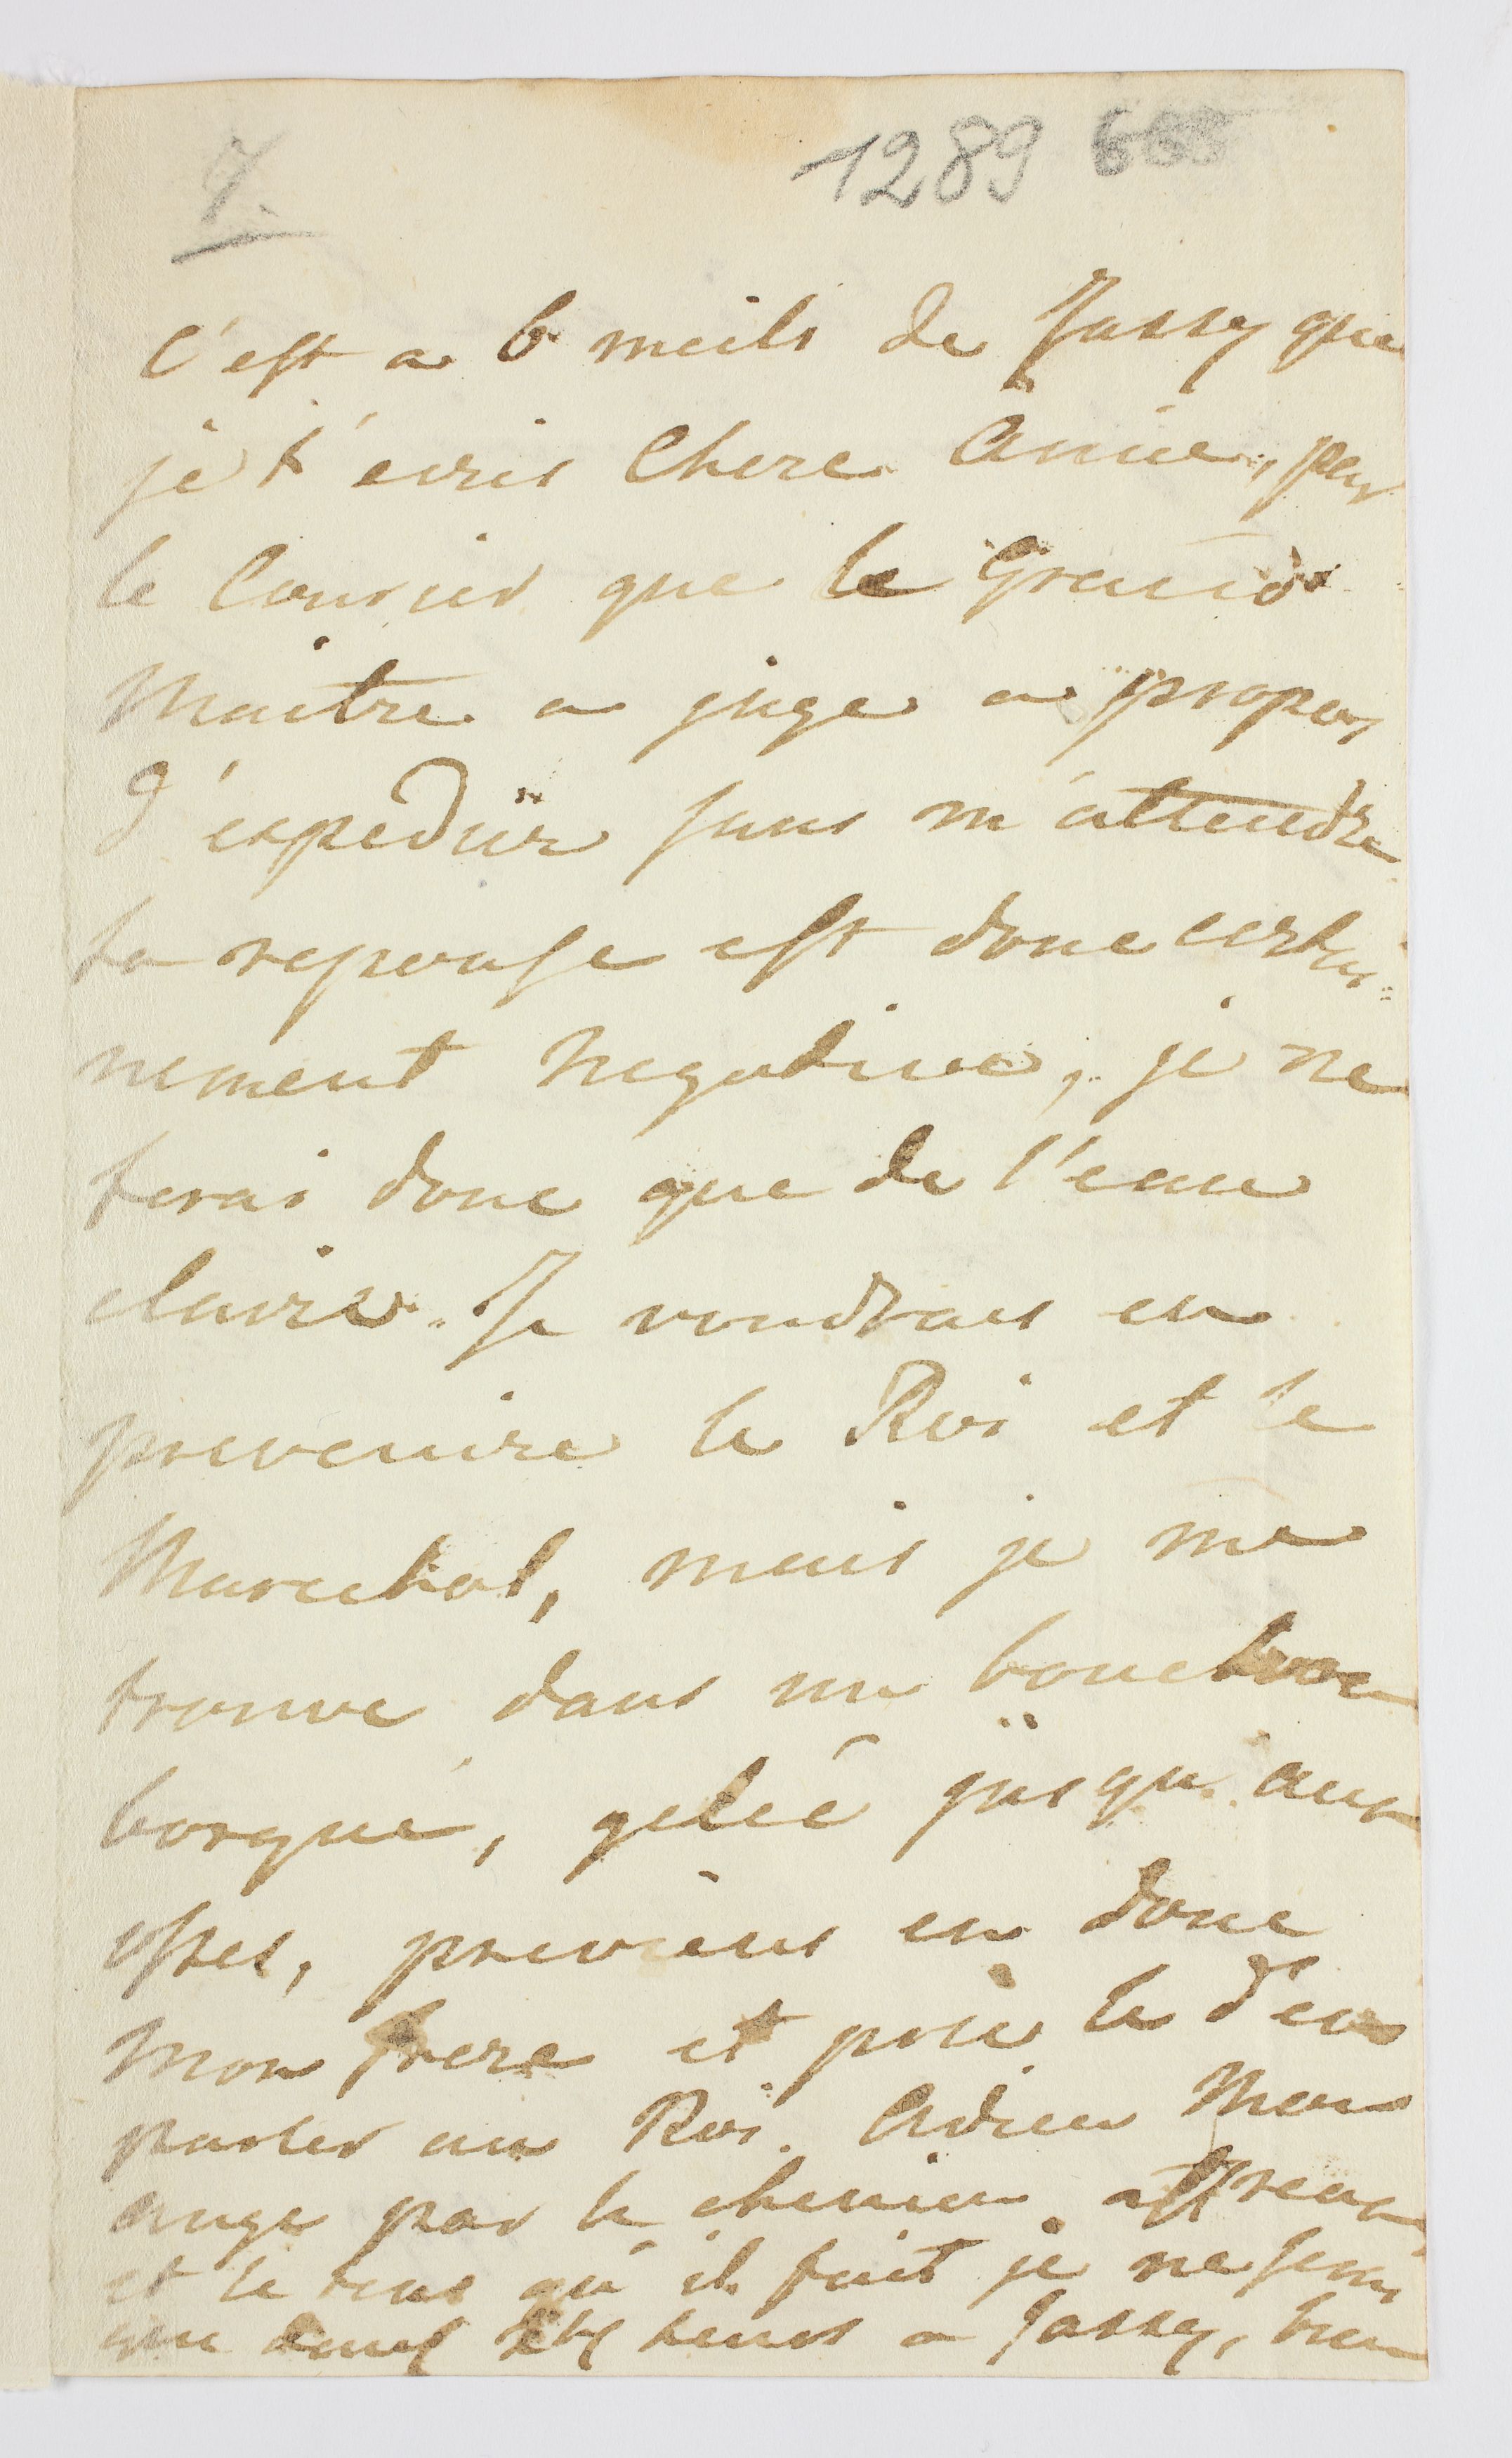 7.
1289
c'est a 6 meils de Jassy que
je t'ecris Chere Amie, par
le Courier que le Grand
Maitre a juge a propos
d'expedier sans m'attendre
la reponse est donc certai=
nement Negative, je ne
ferai donc que de l'eau
claire. Je voudrais en
prevenire le Roi et le
Marechal, mais je me
trouve dans un bouchon
borgne, gelée jusqu'aux
osses, previens en donc
mon frere et prie le d'en
parler au Roi. Adieu Mon
ange par le chemin affreux
et le tems qu'il fait je ne serai
que dans heures a Jassy, bien